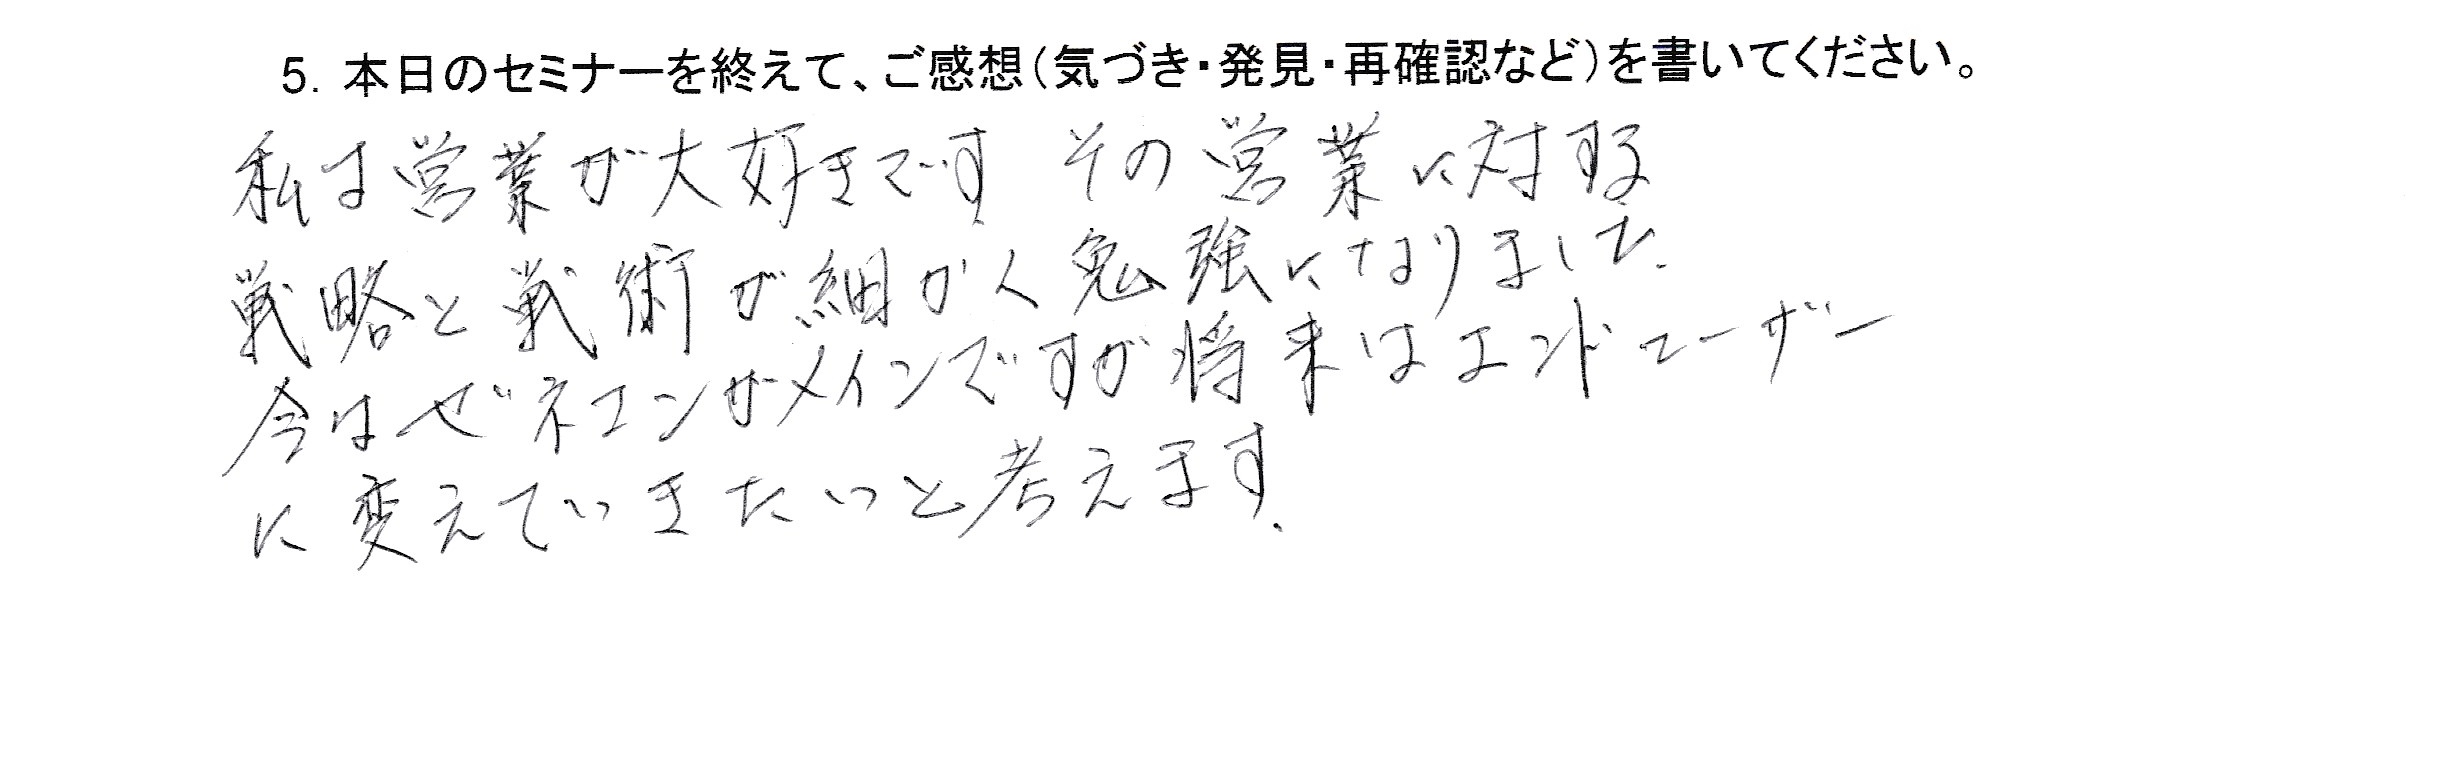 5. 本日のセミナーを終えて、ご感想(気づき・発見・再確認など)を書いてください。
私は営業が大好きです その営業に対する
戦略と戦術が細かく勉強になりました.
今はゼネコンがメインですが将来はエンドユーザー
に変えていきたいっと考えます.